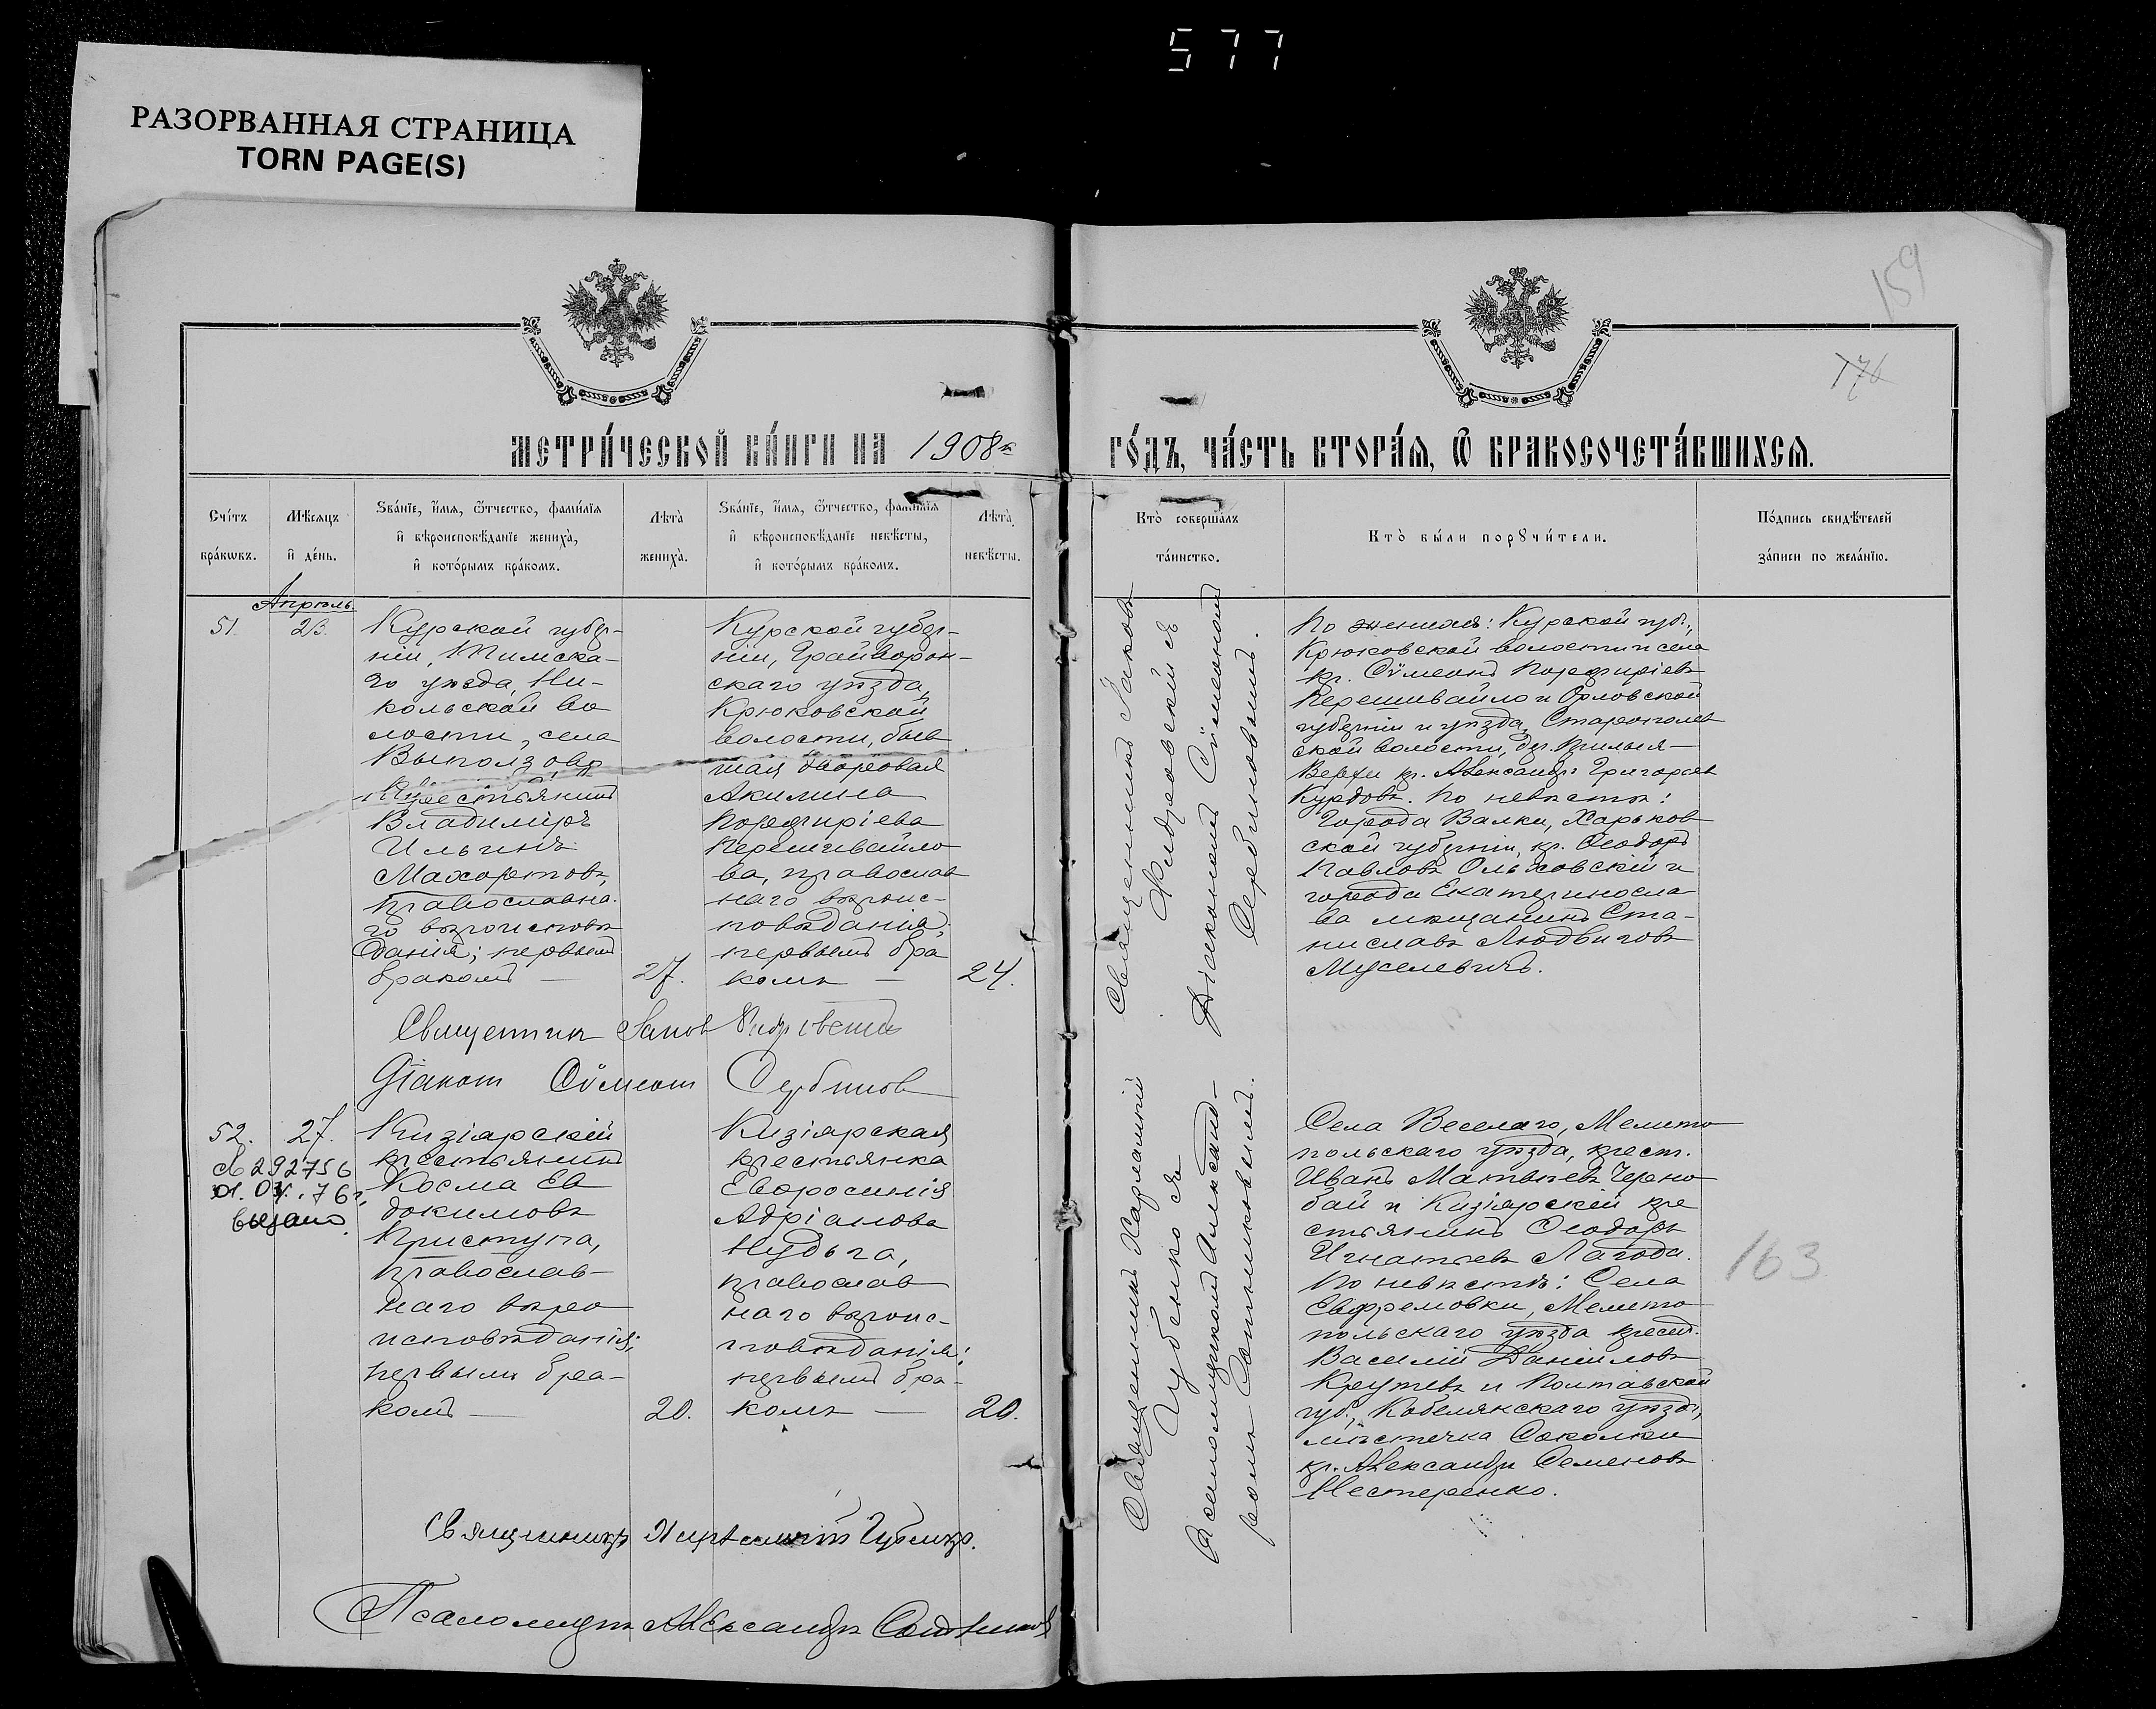 577
РАЗОРВАННАЯ СТРАНИЦА
TORN PAGE(S)
159
176
МЕТРИ́ЧЕСКОЙ КНИ́ГИ НА 1908й
ГО́ДЪ, ЧА́СТЬ ВТОРА́Я, Ѿ БРАКОСОЧЕТА́ВШИХСЯ.
Сче́тъ бра́кωвъ.
Мѣ́сяцъ и҆ де́нь.
Зва́нїе, и҆́мя, ѻ҆́тчество, фами́лїя
и҆ вѣроисповѣ́данїе жениха̀,
и҆ кото́рымъ бра́комъ.
Лѣта̀ жениха̀.
Зва́нїе, и҆́мя, ѻ҆́тчество, фами́лїя
и҆ вѣроисповѣ́данїе невѣ́сты,
и҆ кото́рымъ бра́комъ.
Лѣта̀ невѣ́сты.
Кто̀ соверша́лъ
та́инство.
Кто̀ бы́ли порꙋчи́тели.
По́дпись свидѣ́телей
за́писи по жела́нїю.
Апрѣль.
51.
23.
Курской губер-
ніи, Тимска-
го уѣзда, Ни-
кольской во
лости, села
Выползова
крестьянинъ
Владиміръ
Ильинъ
православна-
го вѣроисповѣ
данія; первымъ
бракомъ —
27.
Курской губер-
ніи, Грайворон-
скаго уѣзда,
Крюковской
волости, быв
шая дворовая
Акилина
Порфиріева
Перешивайло
ва, православ
наго вѣроис-
повѣданія;
первымъ бра
комъ —
24.
Священникъ Іаковъ
Діакономъ Сѵмеономъ
Сербиновымъ.
По женихѣ: Курской губ.,
Крюковской волости и села
кр. Сѵмеонъ Порфиріевъ
Перешивайло и Орловской
губерніи и уѣзда,
ской волости, дер.
Верхи кр. Александръ Григорьевъ
Курдовъ. По невѣстѣ:
Города Валки, Харьков
ской губерніи, кр. Ѳеодоръ
Павловъ Ольховскій и
города Екатериносла
ва мѣщанинъ Ста-
ниславъ Людвиговъ
Муселевичъ.
Священникъ Іаковъ
Діаконъ Сѵмеонъ Сербиновъ
52.
27.
№ 292756
01.04.76г.
выдано.
Кизіярскій
крестьянинъ
Косма Ев
докимовъ
Приступа,
православ-
наго вѣро
исповѣданія;
первымъ бра-
комъ —
20.
Кизіярская
крестьянка
Евфросинія
Адріанова
Нудьга,
православ
наго вѣроис-
повѣданія;
первымъ бра-
комъ —
20.
Священникъ Харлампій
Губенко съ
Псаломщикомъ Александ-
ромъ Сотниковымъ.
Села Веселаго, Мелито
польскаго уѣзда, крест.
Иванъ Матвѣевъ Черно
бай и Кизіярскій кре
стьянинъ Ѳеодоръ
Игнатьевъ Лагода.
По невѣстѣ: Села
Евфремовки, Мелито
польскаго уѣзда крест.
Василій Даніиловъ
Крутевъ и Полтавской
губ., Кобелякскаго уѣзда,
мѣстечка Соколки
кр. Александръ Семеновъ
Нестеренко.
163
Священникъ Харлампій Губенко.
Псаломщикъ Александръ Сотниковъ